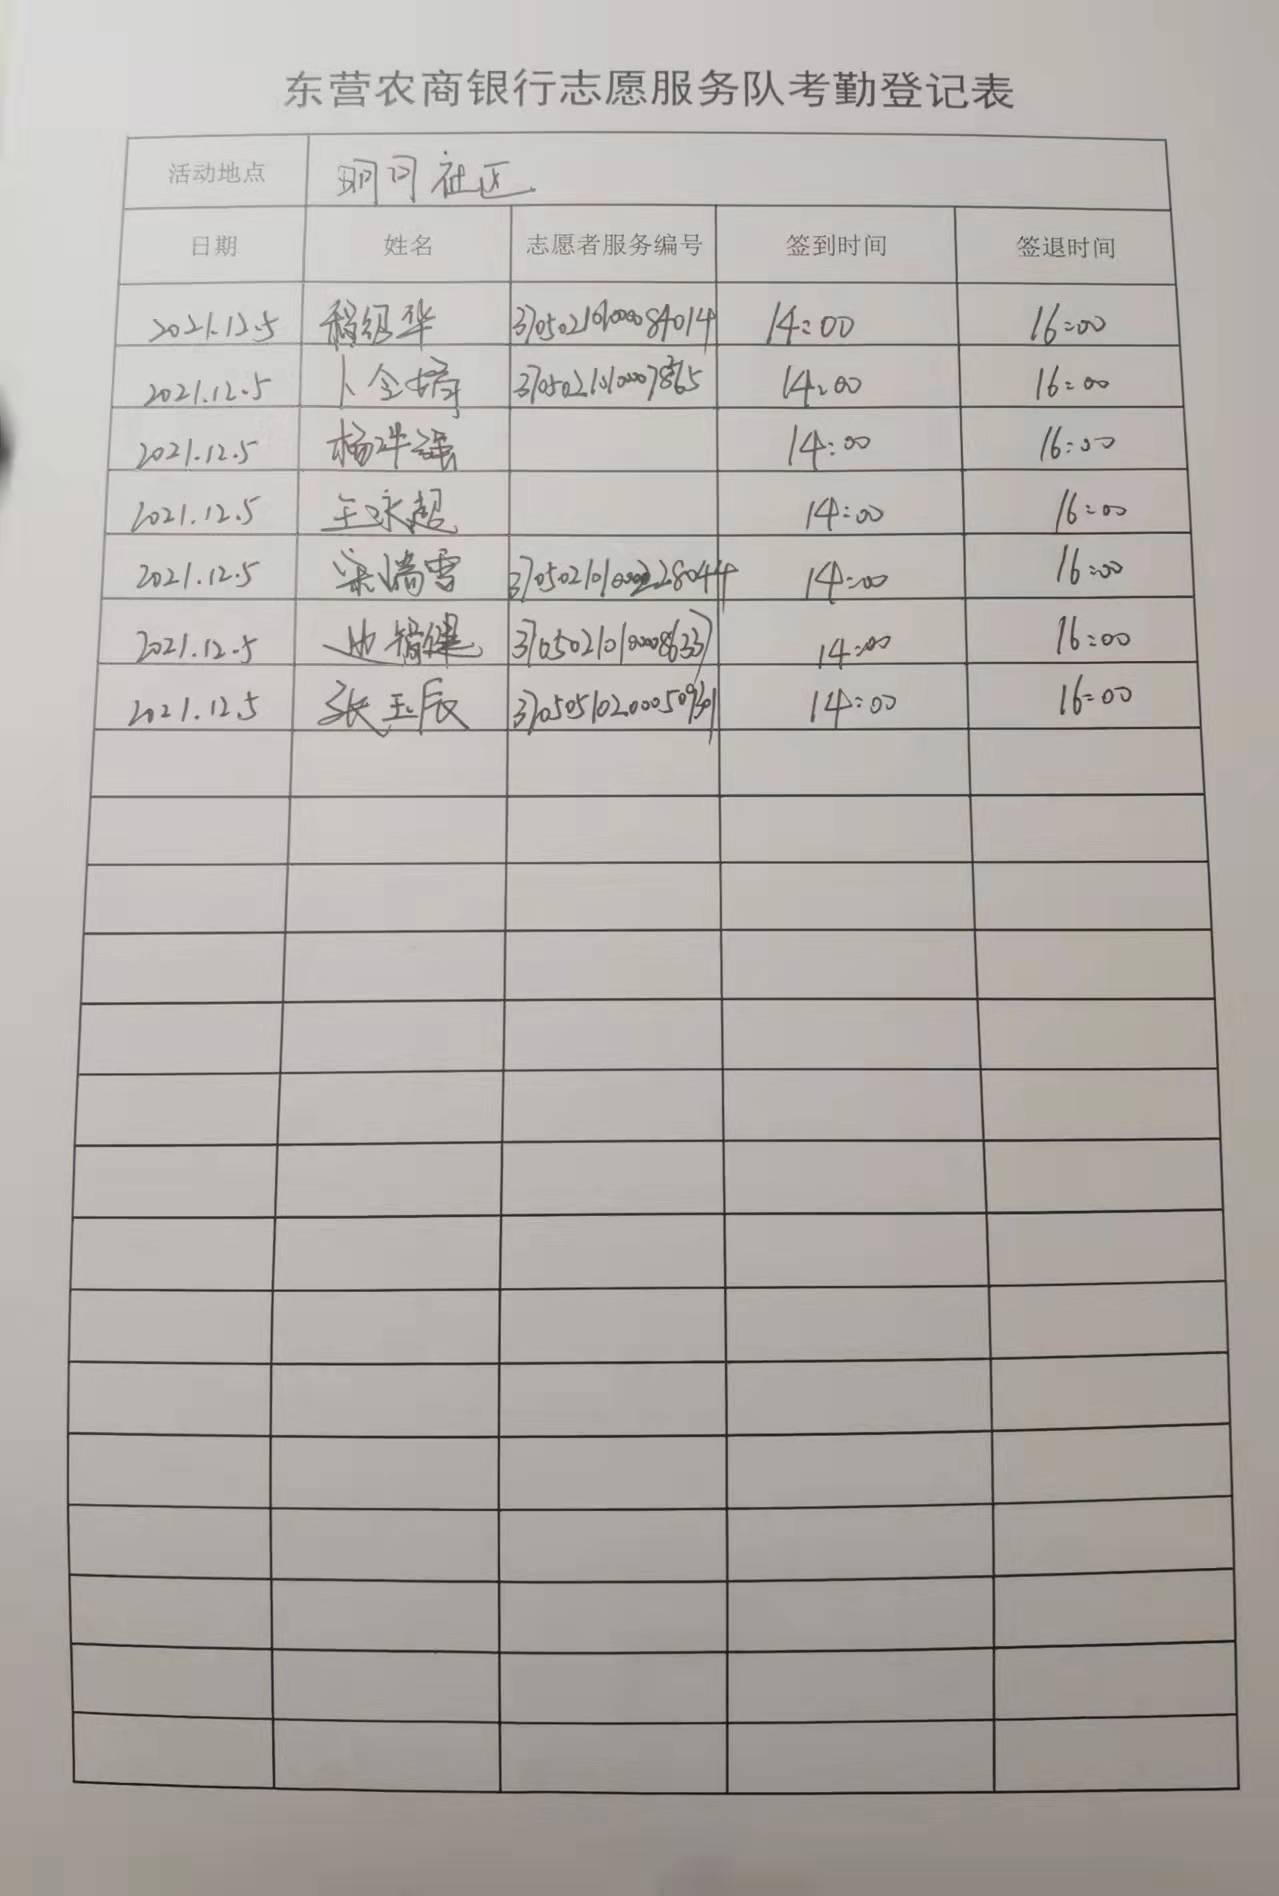 东营农商银行志愿服务队考勤登记表
活动地点 明月社区
日期 姓名 志愿者服务编号 签到时间 签退时间
2021.12.5 14:00 16:00
2021.12.5 卜全婷 14:00 16:00
2021.12.5 杨华强 14:00 16:00
2021.12.5 王永超 14:00 16:00
2021.12.5 梁瑞雪 14:00 16:00
2021.12.5 14:00 16:00
2021.12.5 张玉辰 14:00 16:00